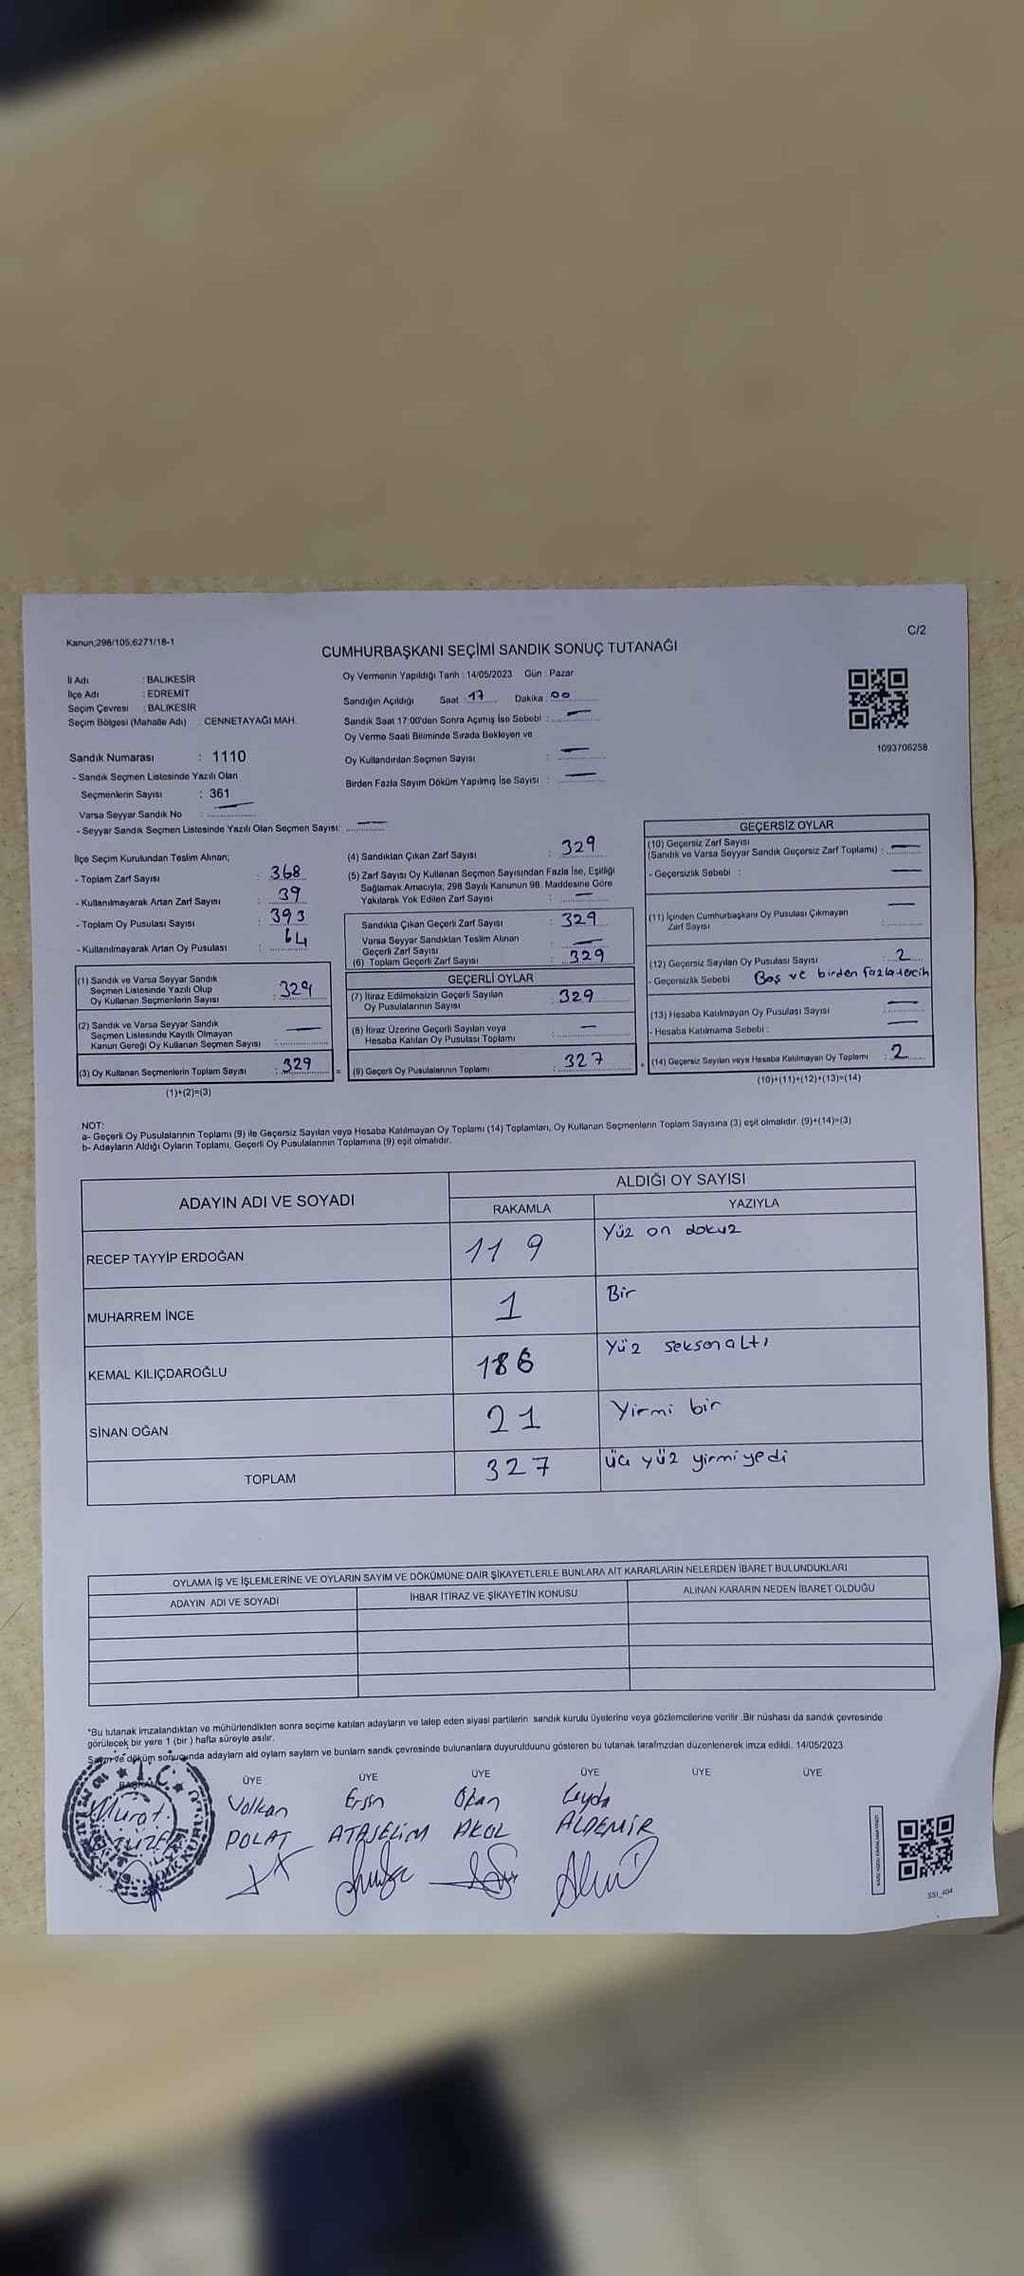 Kanun;298/105,6271/18-1
C/2
CUMHURBAŞKANI SEÇİMİ SANDIK SONUÇ TUTANAĞI
İl Adı : BALIKESİR
İlçe Adı : EDREMİT
Seçim Çevresi : BALIKESİR
Seçim Bölgesi (Mahalle Adı) : CENNETAYAĞI MAH.
Sandık Numarası : 1110
- Sandık Seçmen Listesinde Yazılı Olan
Seçmenlerin Sayısı : 361
Varsa Seyyar Sandık No : —
- Seyyar Sandık Seçmen Listesinde Yazılı Olan Seçmen Sayısı: —
Oy Vermenin Yapıldığı Tarih : 14/05/2023 Gün : Pazar
Sandığın Açıldığı Saat : 17 Dakika : 00
Sandık Saat 17:00'den Sonra Açımış İse Sebebi : —
Oy Verme Saati Bitiminde Sırada Bekleyen ve
Oy Kullandırılan Seçmen Sayısı : —
Birden Fazla Sayım Döküm Yapılmış İse Sayısı : —
1093706258
İlçe Seçim Kurulundan Teslim Alınan;
- Toplam Zarf Sayısı : 368
- Kullanılmayarak Artan Zarf Sayısı : 39
- Toplam Oy Pusulası Sayısı : 393
- Kullanılmayarak Artan Oy Pusulası : 64
(1) Sandık ve Varsa Seyyar Sandık
Seçmen Listesinde Yazılı Olup
Oy Kullanan Seçmenlerin Sayısı : 329
(2) Sandık ve Varsa Seyyar Sandık
Seçmen Listesinde Kayıtlı Olmayan
Kanun Gereği Oy Kullanan Seçmen Sayısı : —
(3) Oy Kullanan Seçmenlerin Toplam Sayısı : 329 =
(1)+(2)=(3)
(4) Sandıktan Çıkan Zarf Sayısı : 329
(5) Zarf Sayısı Oy Kullanan Seçmen Sayısından Fazla İse, Eşitliği
Sağlamak Amacıyla, 298 Sayılı Kanunun 98. Maddesine Göre
Yakılarak Yok Edilen Zarf Sayısı : —
Sandıkta Çıkan Geçerli Zarf Sayısı : 329
Varsa Seyyar Sandıktan Teslim Alınan
Geçerli Zarf Sayısı : —
(6) Toplam Geçerli Zarf Sayısı : 329
GEÇERLİ OYLAR
(7) İtiraz Edilmeksizin Geçerli Sayılan
Oy Pusulalarının Sayısı : 329
(8) İtiraz Üzerine Geçerli Sayılan veya
Hesaba Katılan Oy Pusulası Toplamı : —
(9) Geçerli Oy Pusulalarının Toplamı : 327 +
GEÇERSİZ OYLAR
(10) Geçersiz Zarf Sayısı
(Sandık ve Varsa Seyyar Sandık Geçersiz Zarf Toplamı) : —
- Geçersizlik Sebebi : —
(11) İçinden Cumhurbaşkanı Oy Pusulası Çıkmayan
Zarf Sayısı : —
(12) Geçersiz Sayılan Oy Pusulası Sayısı : 2
- Geçersizlik Sebebi Boş ve birden fazla tercih
(13) Hesaba Katılmayan Oy Pusulası Sayısı : —
- Hesaba Katılmama Sebebi : —
(14) Geçersiz Sayılan veya Hesaba Katılmayan Oy Toplamı : 2
(10)+(11)+(12)+(13)=(14)
NOT:
a- Geçerli Oy Pusulalarının Toplamı (9) ile Geçersiz Sayılan veya Hesaba Katılmayan Oy Toplamı (14) Toplamları, Oy Kullanan Seçmenlerin Toplam Sayısına (3) eşit olmalıdır. (9)+(14)=(3)
b- Adayların Aldığı Oyların Toplamı, Geçerli Oy Pusulalarının Toplamına (9) eşit olmalıdır.
ADAYIN ADI VE SOYADI
ALDIĞI OY SAYISI
RAKAMLA YAZIYLA
RECEP TAYYİP ERDOĞAN 119 Yüz on dokuz
MUHARREM İNCE 1 Bir
KEMAL KILIÇDAROĞLU 186 Yüz seksen altı
SİNAN OĞAN 21 Yirmi bir
TOPLAM 327 üç yüz yirmi yedi
OYLAMA İŞ VE İŞLEMLERİNE VE OYLARIN SAYIM VE DÖKÜMÜNE DAİR ŞİKAYETLERLE BUNLARA AİT KARARLARIN NELERDEN İBARET BULUNDUKLARI
ADAYIN ADI VE SOYADI İHBAR İTİRAZ VE ŞİKAYETİN KONUSU ALINAN KARARIN NEDEN İBARET OLDUĞU
*Bu tutanak imzalandıktan ve mühürlendikten sonra seçime katılan adayların ve talep eden siyasi partilerin sandık kurulu üyelerine veya gözlemcilerine verilir .Bir nüshası da sandık çevresinde
görülecek bir yere 1 (bir ) hafta süreyle asılır.
Sayım ve döküm sonucunda adayların ald oylarn saylarn ve bunlarn sandk çevresinde bulunanlara duyurulduunu gösteren bu tutanak tarafmzdan düzenlenerek imza edildi. 14/05/2023
BAŞKAN ÜYE ÜYE ÜYE ÜYE ÜYE ÜYE
Murat Volkan Ersin Okan Ceyda
POLAT AKOL ALDEMİR
T.C.
SSI_404